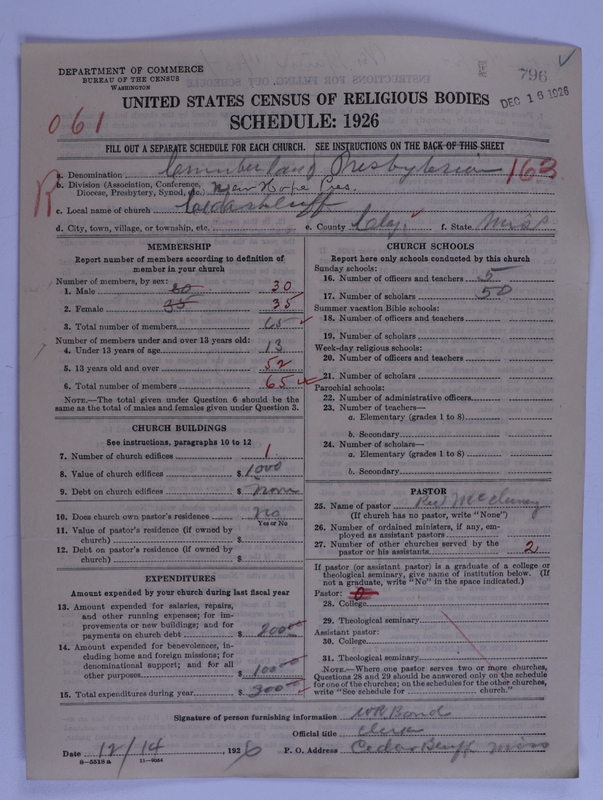 DEPARTMENT OF COMMERCE
BUREAU OF THE CENSUS
WASHINGTON
796
DEC 16 1926
UNITED STATES CENSUS OF RELIGIOUS BODIES
SCHEDULE: 1926
061
FILL OUT A SEPARATE SCHEDULE FOR EACH CHURCH. SEE INSTRUCTIONS ON THE BACK OF THIS SHEET
a. Denomination Cumberland Presbyterian 163
b. Division (Association, Conference, Diocese, Presbytery, Synod, etc.) New Hope Pres.
R
c. Local name of church Cedarbluff
d. City, town, village, or township, etc. e. County Clay f. State Miss
MEMBERSHIP
Report number of members according to definition of
member in your church
Number of members, by sex:
1. Male 30 30
2. Female 35 35
3. Total number of members 65
Number of members under and over 13 years old:
4. Under 13 years of age 13
5. 13 years old and over 52
6. Total number of members 65
NOTE.—The total given under Question 6 should be
same as the total of males and females given under Question 3.
CHURCH BUILDINGS
See instructions, paragraphs 10 to 12
7. Number of church edifices 1
8. Value of church edifices $ 1000
9. Debt on church edifices $ None
10. Does church own pastor's residence No
Yes or No
11. Value of pastor's residence (if owned by
church) $
12. Debt on pastor's residence (if owned by
church) $
EXPENDITURES
Amount expended by your church during last fiscal year
13. Amount expended for salaries, repairs,
and other running expenses; for im-
provements or new buildings; and for
payments on church debt $ 200.00
14. Amount expended for benevolences, in-
cluding home and foreign missions; for
denominational support; and for all
other purposes $ 100.00
15. Total expenditures during year $ 300.00
CHURCH SCHOOLS
Report here only schools conducted by this church
Sunday schools:
16. Number of officers and teachers 5
17. Number of scholars 50
Summer vacation Bible schools:
18. Number of officers and teachers
19. Number of scholars
Week-day religious schools:
20. Number of officers and teachers
21. Number of scholars
Parochial schools:
22. Number of administrative officers
23. Number of teachers—
a. Elementary (grades 1 to 8)
b. Secondary
24. Number of scholars—
a. Elementary (grades 1 to 8)
b. Secondary
PASTOR
25. Name of pastor Rev
(If church has no pastor, write "None")
26. Number of ordained ministers, if any, em-
ployed as assistant pastors
27. Number of other churches served by the
pastor or his assistants 2
If pastor (or assistant pastor) is a graduate of a college or
theological seminary, give name of institution below. (If
not a graduate, write "No" in the space indicated.)
Pastor: 0
28. College
29. Theological seminary
Assistant pastor:
30. College
31. Theological seminary
NOTE.—Where one pastor serves two or more churches,
Questions 28 and 29 should be answered only on the schedule
for one of the churches; on the schedules for the other churches,
write "See schedule for church."
Signature of person furnishing information W R Bond
Official title Clerk
Date 12/14, 1926 P. O. Address Cedar Bluff Miss
8—5518a 11—9354